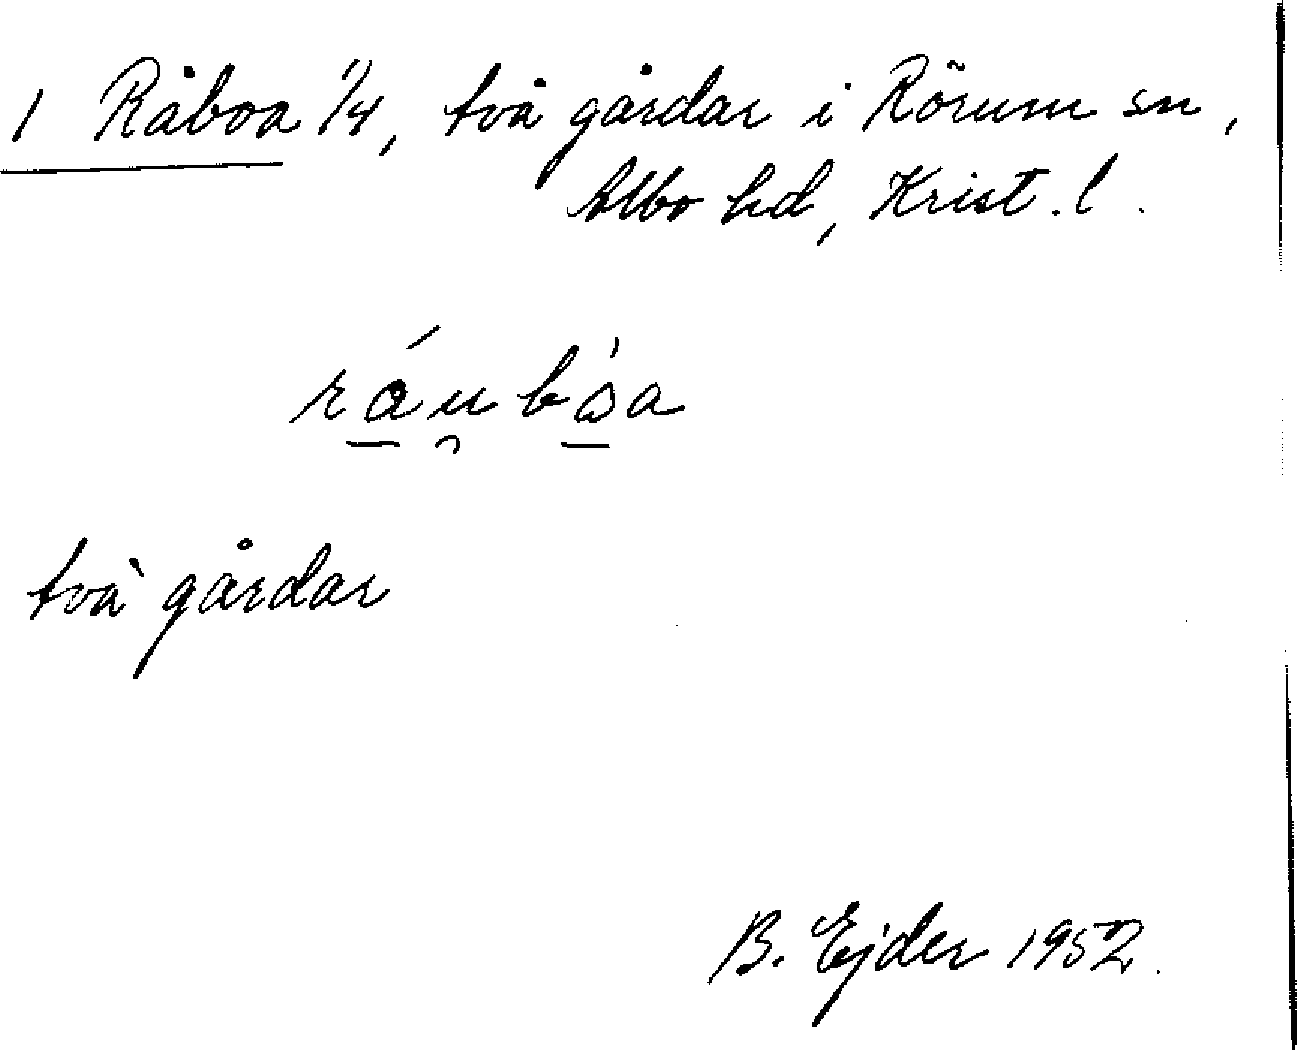 1 Råboa 1/4, två gårdar i Rörum sn,
Albo hd, Krist. l.
ráu̯bòa
två gårdar
B. Ejder 1952.